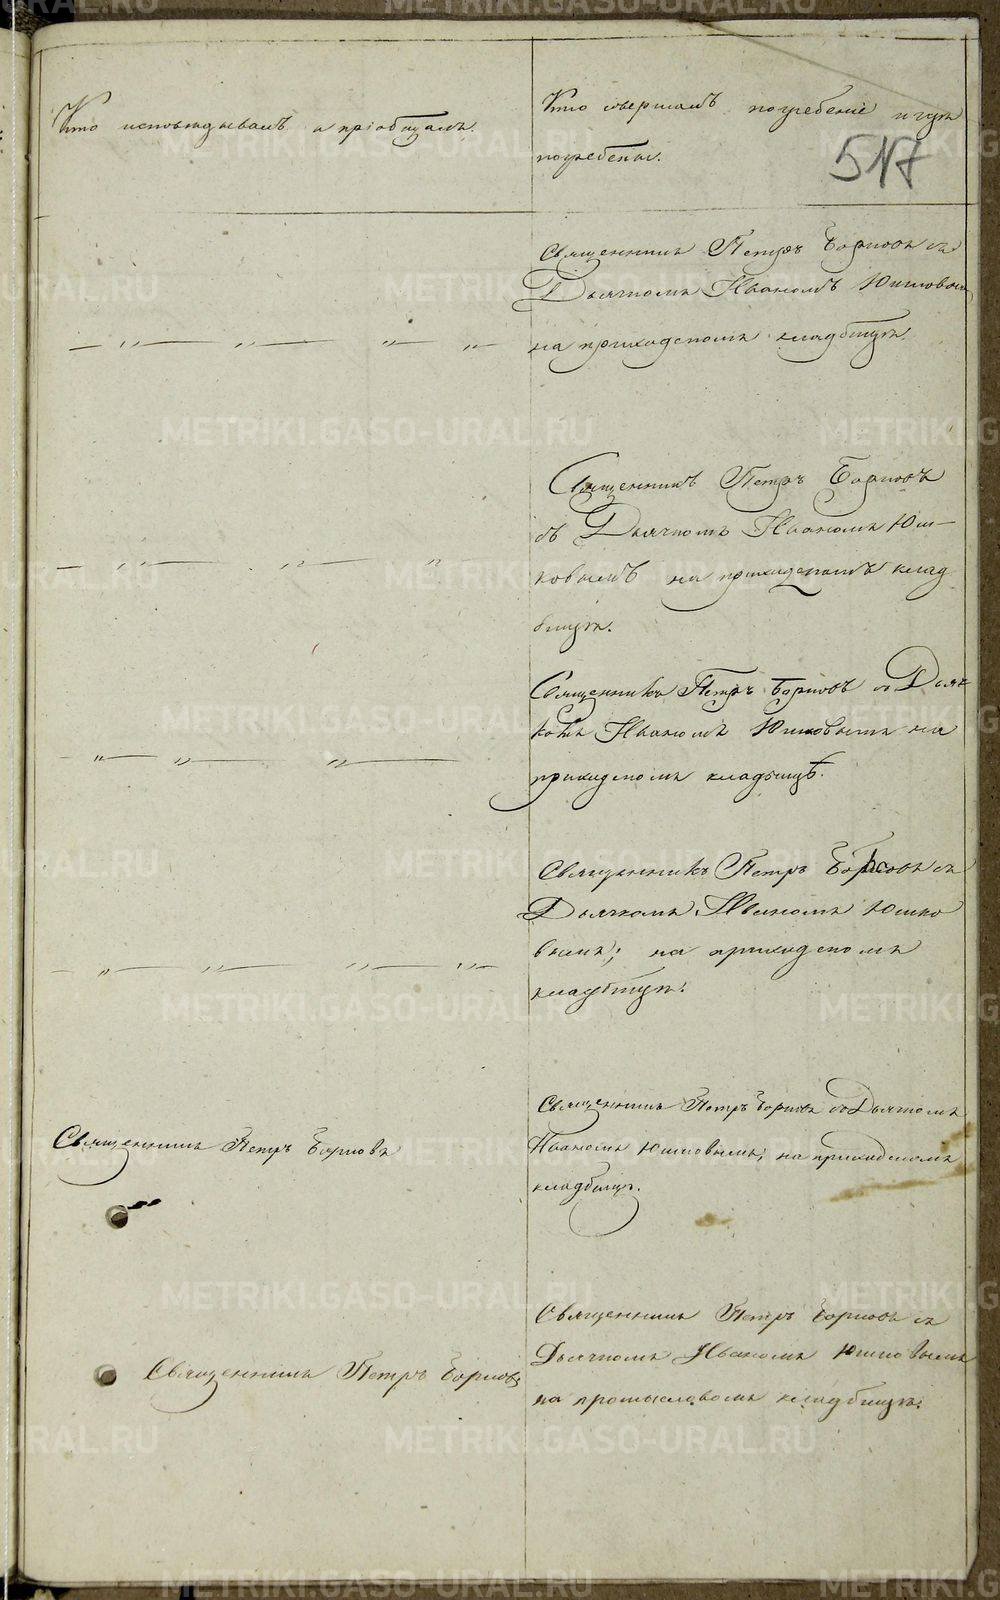 Кто исповѣдывалъ и пріобщалъ.
Кто совершалъ погребеніе и гдѣ
погребены.
517
Священникъ Петръ Борисовъ съ
Дьячкомъ Иваномъ Юшковымъ
на приходскомъ кладбищѣ.
Священникъ Петръ Борисовъ
съ Дьячкомъ Иваномъ Юш-
ковымъ на приходскомъ клад
бищѣ.
Священникъ Петръ Борисовъ со Дьяч-
комъ Иваномъ Юшковымъ на
приходскомъ кладбищѣ.
Священникъ Петръ Борисовъ съ
Дьячкомъ Иваномъ Юшко
вымъ; на приходскомъ
кладбищѣ.
Священникъ Петръ Борисовъ
Священникъ Петръ Борисовъ со Дьячкомъ
Иваномъ Юшковымъ; на приходскомъ
кладбищѣ.
Священникъ Петръ Борисовъ
Священникъ Петръ Борисовъ съ
Дьячкомъ Иваномъ Юшковымъ
на промысловомъ кладбищѣ.
METRIKI.GASO-URAL.RU